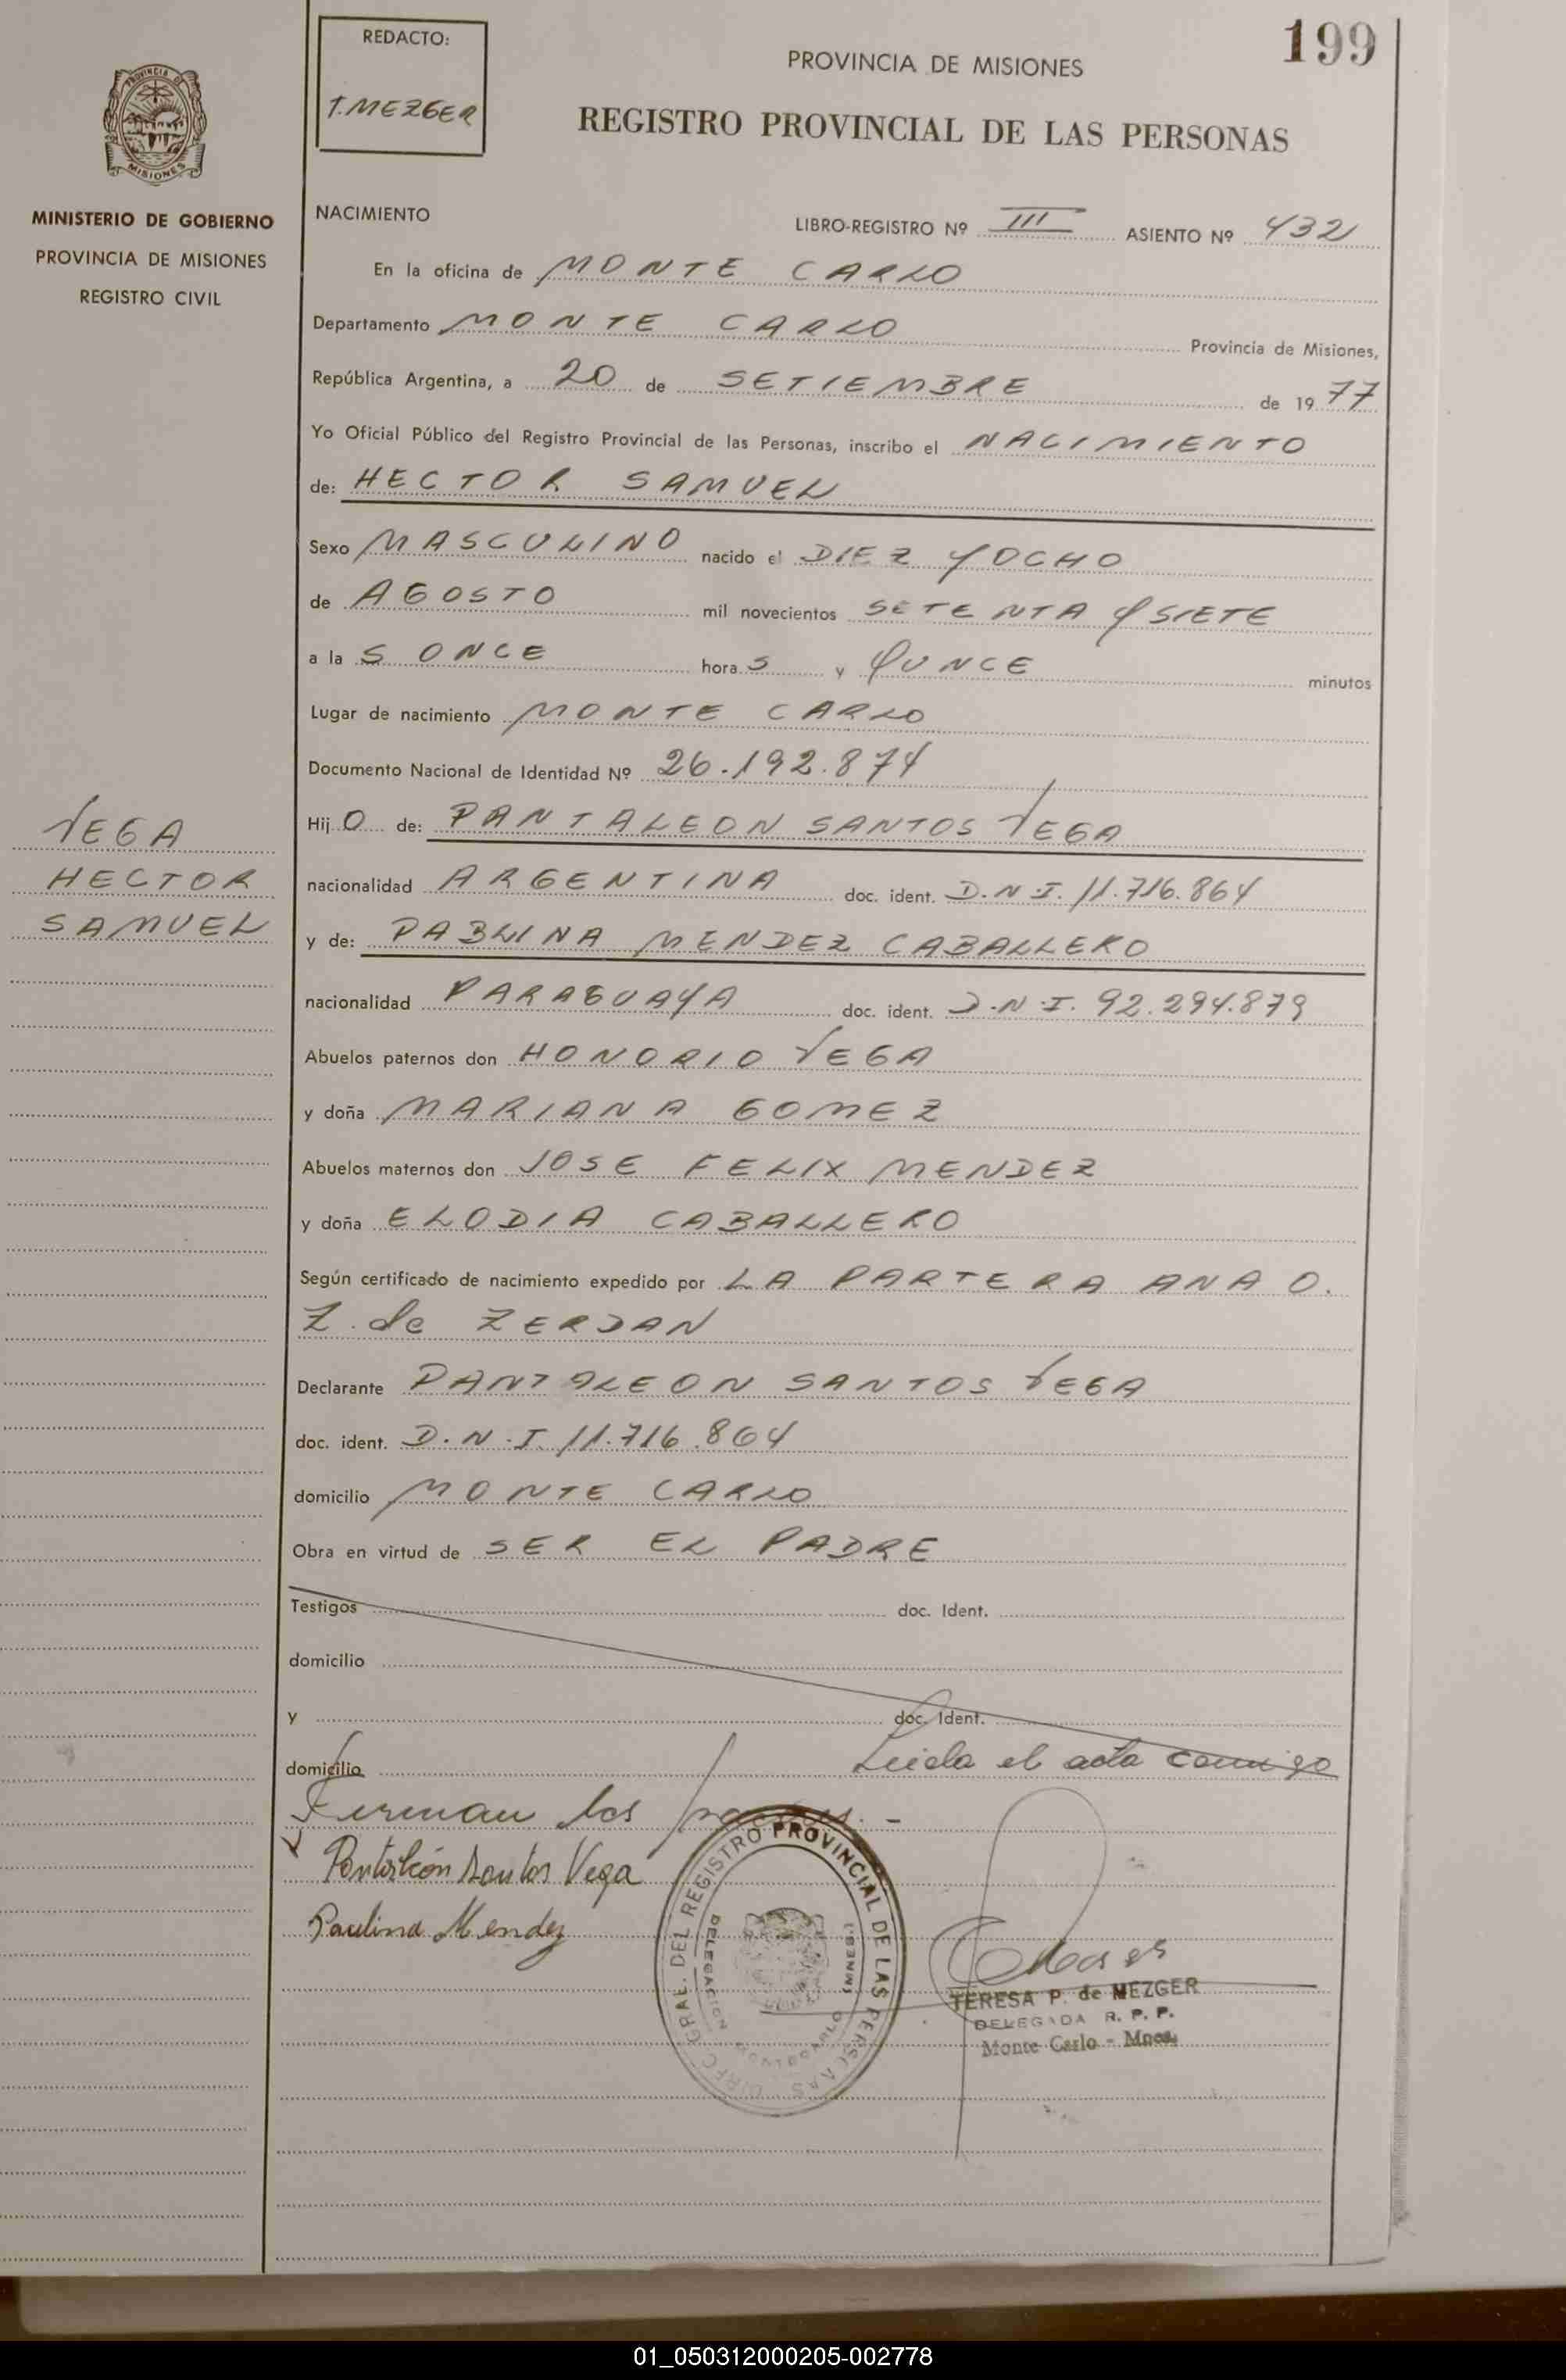 199
REDACTO:
T. MEZGER
PROVINCIA DE MISIONES
REGISTRO PROVINCIAL DE LAS PERSONAS
PROVINCIA DE
MISIONES
MINISTERIO DE GOBIERNO
PROVINCIA DE MISIONES
REGISTRO CIVIL
VEGA
HECTOR
SAMUEL
NACIMIENTO LIBRO-REGISTRO Nº III ASIENTO Nº 432
En la oficina de MONTE CARLO
Departamento MONTE CARLO Provincia de Misiones,
República Argentina, a 20 de SETIEMBRE de 1977
Yo Oficial Público del Registro Provincial de las Personas, inscribo el NACIMIENTO
de: HECTOR SAMUEL
Sexo MASCULINO nacido el DIEZ Y OCHO
de AGOSTO mil novecientos SETENTA Y SIETE
a las ONCE horas y QUNCE minutos
Lugar de nacimiento MONTE CARLO
Documento Nacional de Identidad Nº 26.192.874
HijO de: PANTALEON SANTOS VEGA
nacionalidad ARGENTINA doc. ident. D.N.I. 11.716.864
y de: PABLINA MENDEZ CABALLERO
nacionalidad PARAGUAYA doc. ident. D.N.I. 92.294.879
Abuelos paternos don HONORIO VEGA
y doña MARIANA GOMEZ
Abuelos maternos don JOSE FELIX MENDEZ
y doña ELODIA CABALLERO
Según certificado de nacimiento expedido por LA PARTERA ANA O.
Z. de ZERDAN
Declarante PANTALEON SANTOS VEGA
doc. ident. D.N.I. 11.716.864
domicilio MONTE CARLO
Obra en virtud de SER EL PADRE
Testigos doc. Ident.
domicilio
y doc. Ident.
domicilio Leída el acta comigo
Firman los padres.-
Pantaleón Santos Vega
Paulina Mendez
DIREC. GRAL. DEL REGISTRO PROVINCIAL DE LAS PERSONAS
DELEGACION MONTECARLO (MNES.)
TERESA P. de MEZGER
DELEGADA R. P. P.
Monte Carlo - Mnes.
01_050312000205-002778